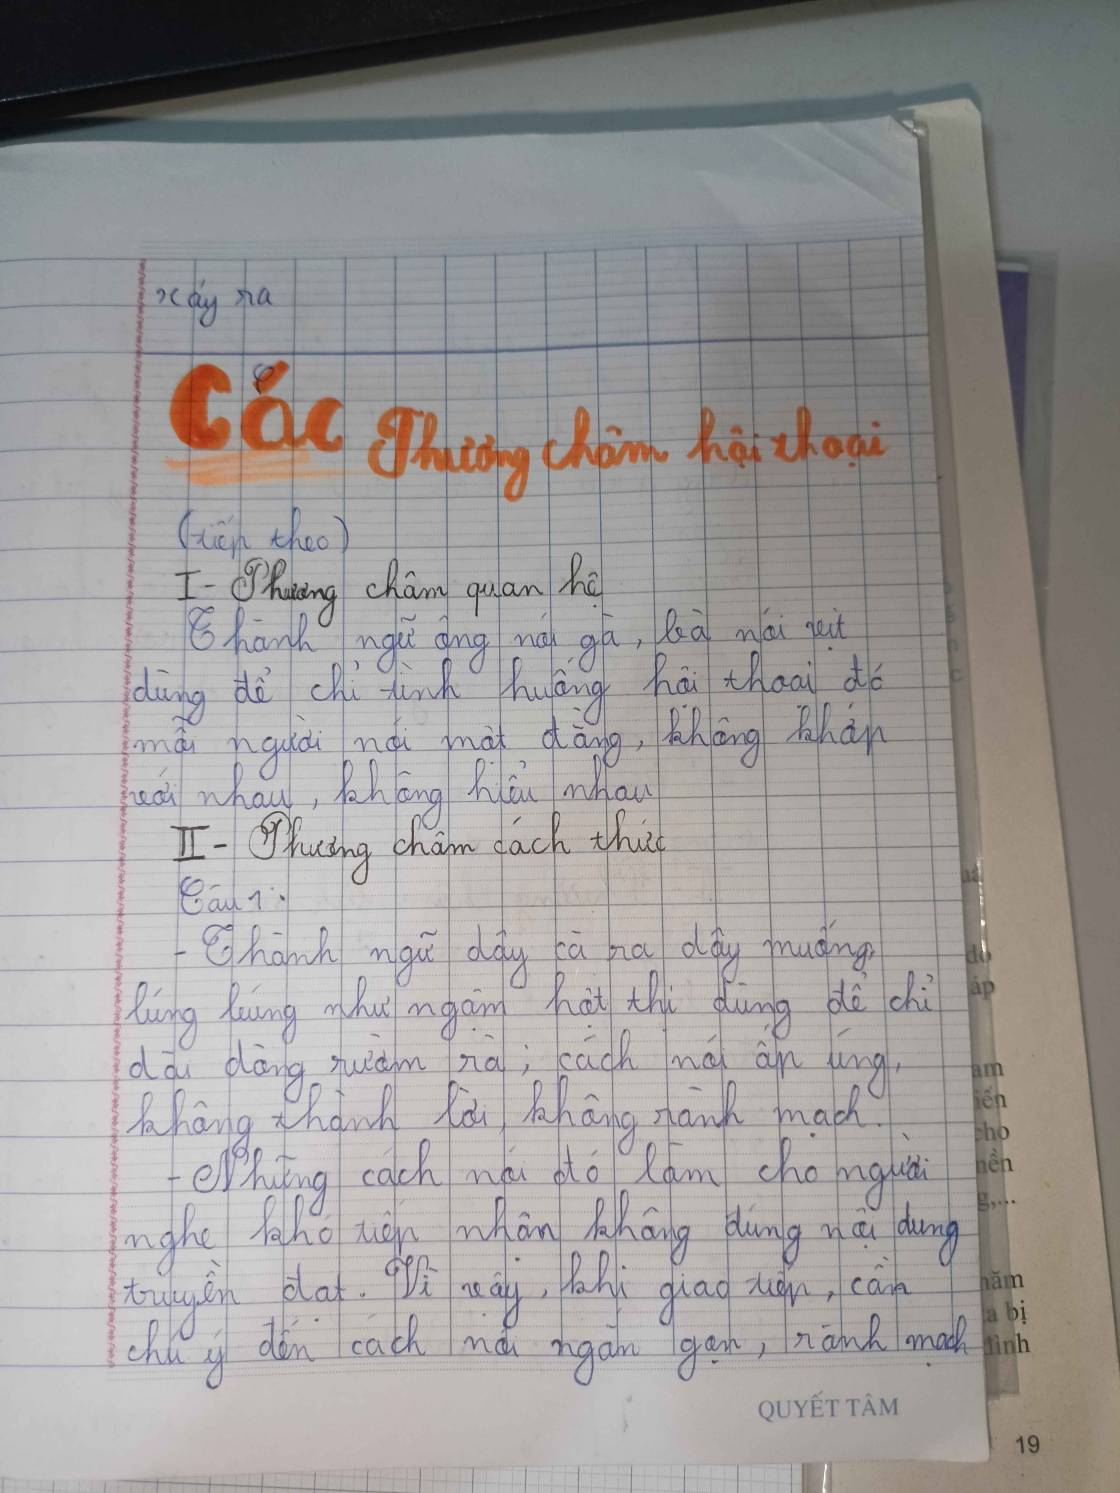 xảy ra
Các Phương châm hội thoại
(tiếp theo)
I - Phương châm quan hệ
Thành ngữ ông nói gà, bà nói vịt
dùng để chỉ tình huống hội thoại đó
mỗi người nói một đằng, không khớp
với nhau, không hiểu nhau
II - Phương châm cách thức
Câu 1:
- Thành ngữ dây cà ra dây muống,
lúng búng như ngậm hột thị dùng để chỉ
dài dòng rườm rà; cách nói ấp úng,
không thành lời, không rành mạch.
- Những cách nói đó làm cho người
nghe khó tiếp nhận không đúng nội dung
truyền đạt. Vì vậy, khi giao tiếp, cần
chú ý đến cách nói ngắn gọn, rành mạch
QUYẾT TÂM
áp
am
iến
cho
nền
g,...
năm
a bị
đình
19